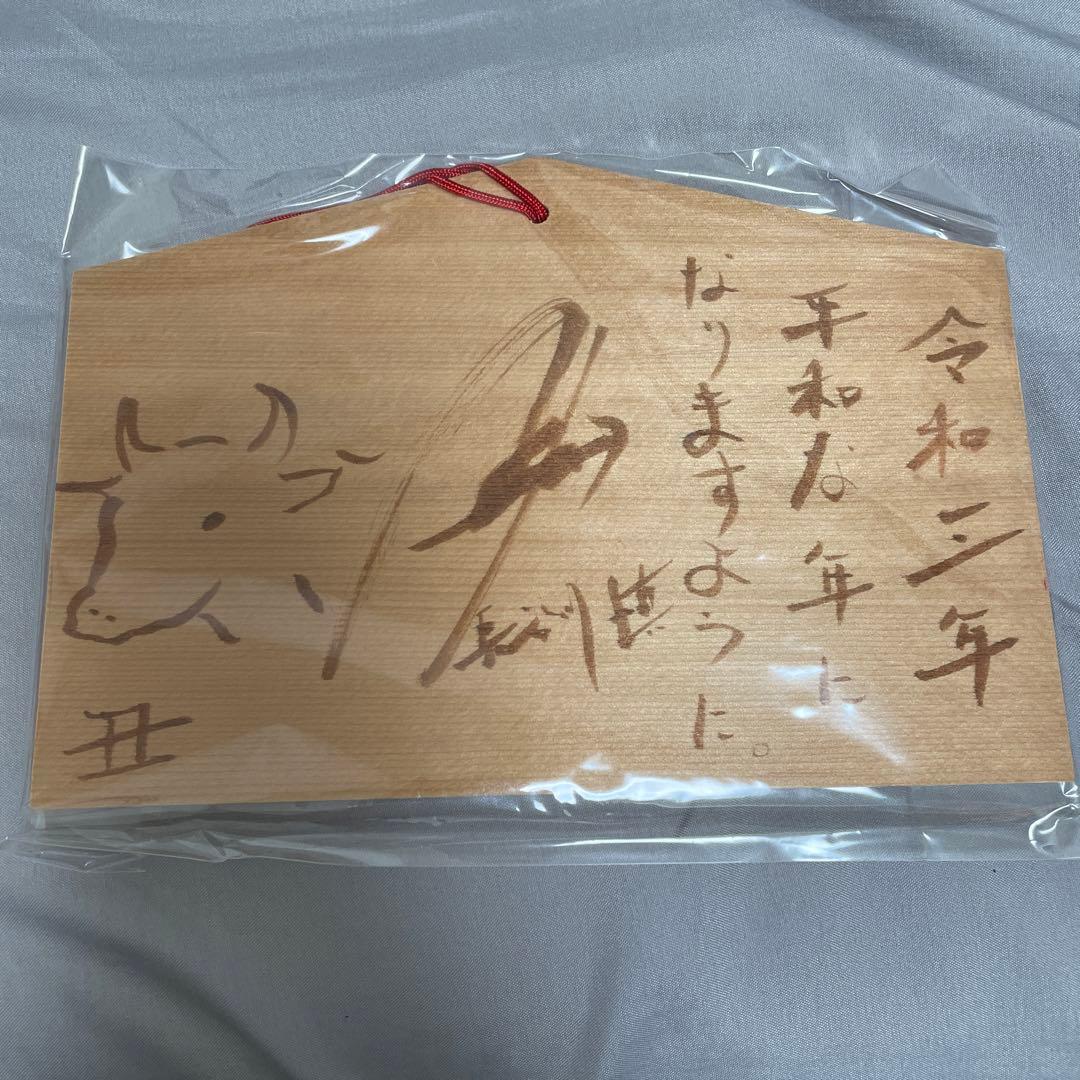 令和三年
平和な年に
なりますように。
丑